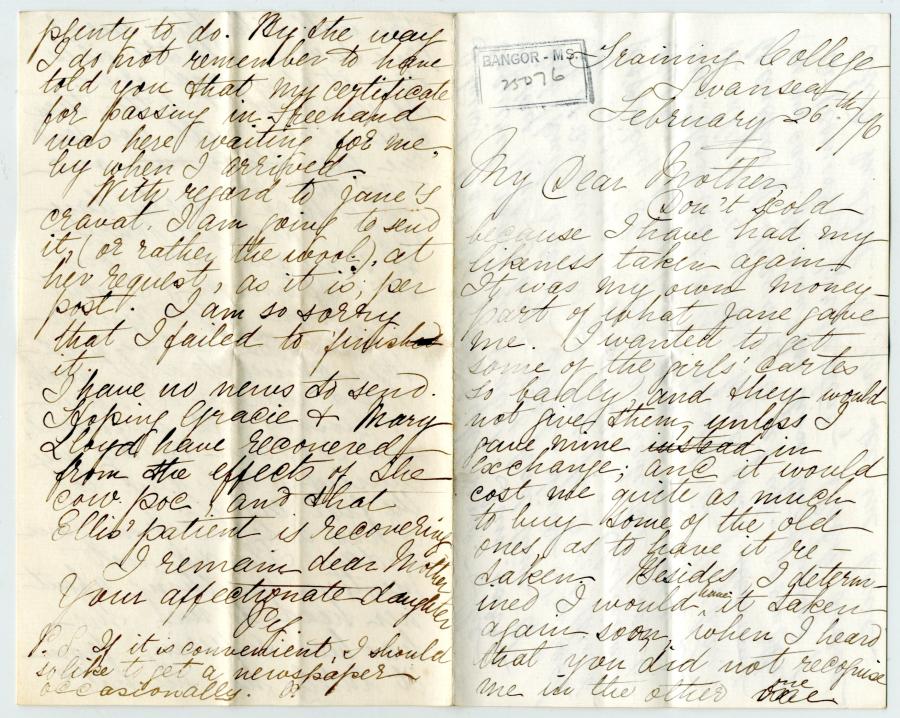 BANGOR - MS.
25076
Training College
Swansea
February 26th/76
My Dear Mother,
Don't scold
because I have had my
likeness taken again
It was my own money -
part of what Jane gave
me. I wanted to get
some of the girls' cartes
so badly, and they would
not give them, unless I
gave mine instead in
exchange; and it would
cost me quite as much
to buy some of the old
ones, as to have it re-
taken. Besides, I determ-
ined I would have it taken
again soon, when I heard
that you did not recognise
me in the other one
plenty to do. By the way
I do not remember to have
told you that my certificate
for passing in Freehand
was here waiting for me
by when I arrived.
With regard to Jane's
cravat. I am going to send
it, (or rather the wool), at
her request, as it is; per
post. I am so sorry
that I failed to finish
it.
I have no news to send.
Hoping Gracie & Mary
Lloyd have recovered
from the effects of the
cow poc, and that
Ellis' patient is recovering
I remain dear Mother
Your affectionate daughter
P.S. If it is convenient, I should
so like to get a newspaper
occasionally.